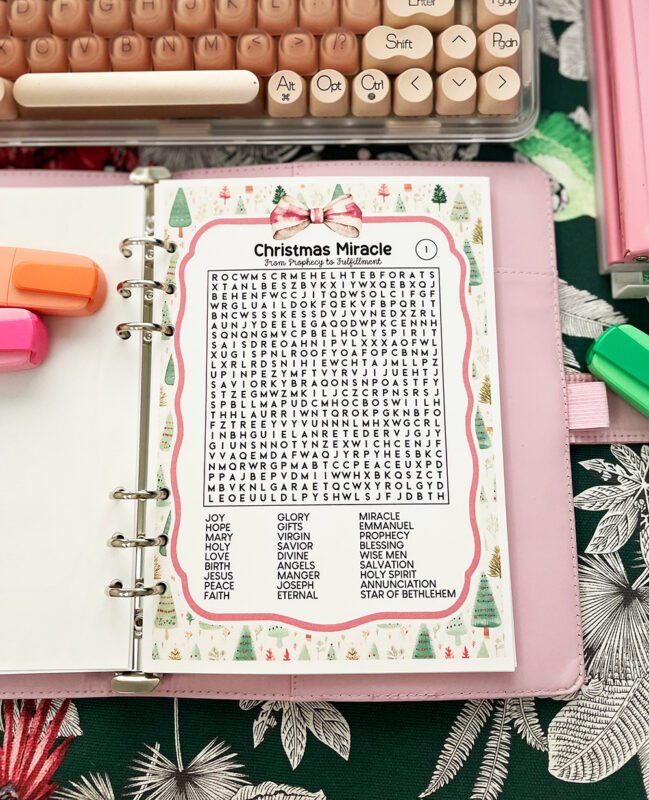 D F G H J K L Enter PgUp
X C V B N M < > /? Shift PgDn
Alt Opt Ctrl
Christmas Miracle
1
From Prophecy to Fulfillment
R O C W M S C R M E H E L H T E B F O R A T S
X T A N L B E S Z B V K X I Y W X Q E B X Q J
B E H E N F W C C J I T Q D W S O L C I F G F
W R G L U A I L D O K F Q E K V F B P Q R I T
B N C W S S S K E S S D V J V V N E D X Z R L
A U N J Y D E E L E G A Q O D W P K C E N N H
S Q N Q N G M V C P B E L H O L Y S P I R I T
S A I S D R E O A H N I P V L X X X A O F W L
X U G I S P N L R O O F Y O A F O P C B N M J
L X R L R D S N I H I E W C H T A J M L L P Z
U P I N P E Z Y M F T V Y R V J I J U E H T J
S A V I O R K Y B R A Q O N S N P O A S T F Y
S T Z E G M W Z M K I L J C Z C R P N S R S J
S P B L L M A P U D C M H O C B O S W I I L H
T H H L A U R R I W N T Q R O K P G K N B F O
F Z T R E E Y V Y V U N N N L M H X W G C R L
I N B H G U I E L A N R E T E D E R V J G J Y
G I U N S N N O T Y N Z E X W I C H C E N J F
V V A Q E M D A F W A Q J Y R P Y H E S B K C
N M Q R W R G P M A B T C C P E A C E U X P D
P P A J B E P V D M I I W W H X B K Q S Z C T
M B V K N L G A R A E T Q C W X Y R O L G Y D
L E O E U U L D L P Y S H W L S J F J D B T H
JOY GLORY MIRACLE
HOPE GIFTS EMMANUEL
MARY VIRGIN PROPHECY
HOLY SAVIOR BLESSING
LOVE DIVINE WISE MEN
BIRTH ANGELS SALVATION
JESUS MANGER HOLY SPIRIT
PEACE JOSEPH ANNUNCIATION
FAITH ETERNAL STAR OF BETHLEHEM